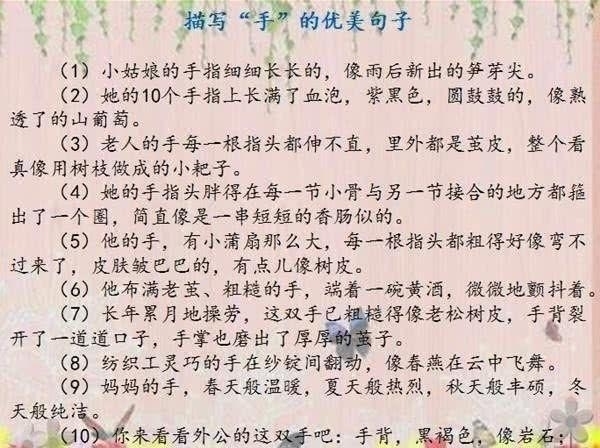 描写“手”的优美句子
（1）小姑娘的手指细细长长的，像雨后新出的笋芽尖。
（2）她的10个手指上长满了血泡，紫黑色，圆鼓鼓的，像熟
透了的山葡萄。
（3）老人的手每一根指头都伸不直，里外都是茧皮，整个看
真像用树枝做成的小耙子。
（4）她的手指头胖得在每一节小骨与另一节接合的地方都箍
出了一个圈，简直像是一串短短的香肠似的。
（5）他的手，有小蒲扇那么大，每一根指头都粗得好像弯不
过来了，皮肤皱巴巴的，有点儿像树皮。
（6）他布满老茧、粗糙的手，端着一碗黄酒，微微地颤抖着。
（7）长年累月地操劳，这双手已粗糙得像老松树皮，手背裂
开了一道道口子，手掌也磨出了厚厚的茧子。
（8）纺织工灵巧的手在纱锭间翻动，像春燕在云中飞舞。
（9）妈妈的手，春天般温暖，夏天般热烈，秋天般丰硕，冬
天般纯洁。
（10）你来看看外公的这双手吧：手背，黑褐色，像岩石；